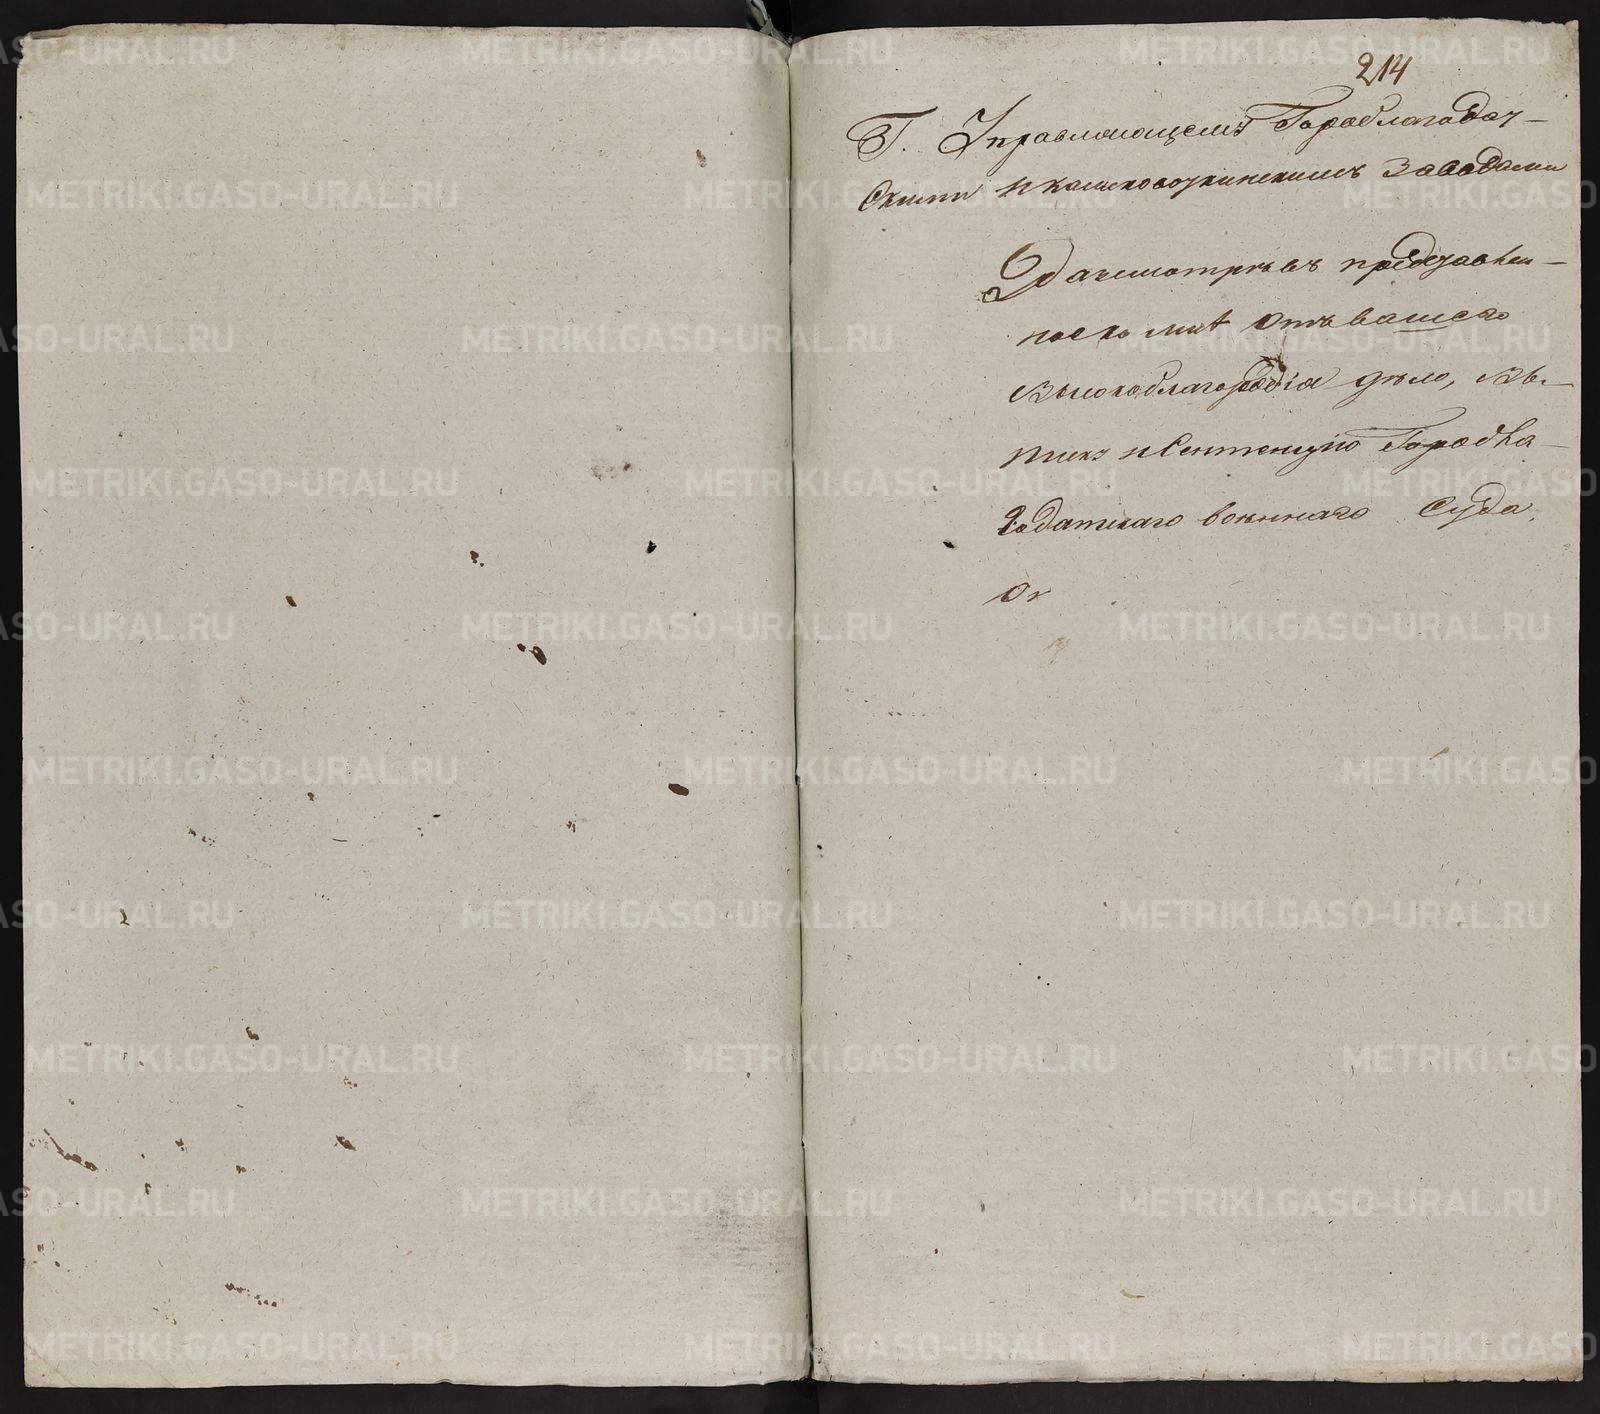 214
Г. Управляющемъ Гороблагодат-
скими и камсковоткинскимъ Заводами
Разсмотревъ представлен-
ное ко мнѣ отъ вашего
высокоблагородія дѣло, вы-
писку и Сентенцію Горобла-
годатскаго военнаго Суда,
Ок
METRIKI.GASO-URAL.RU